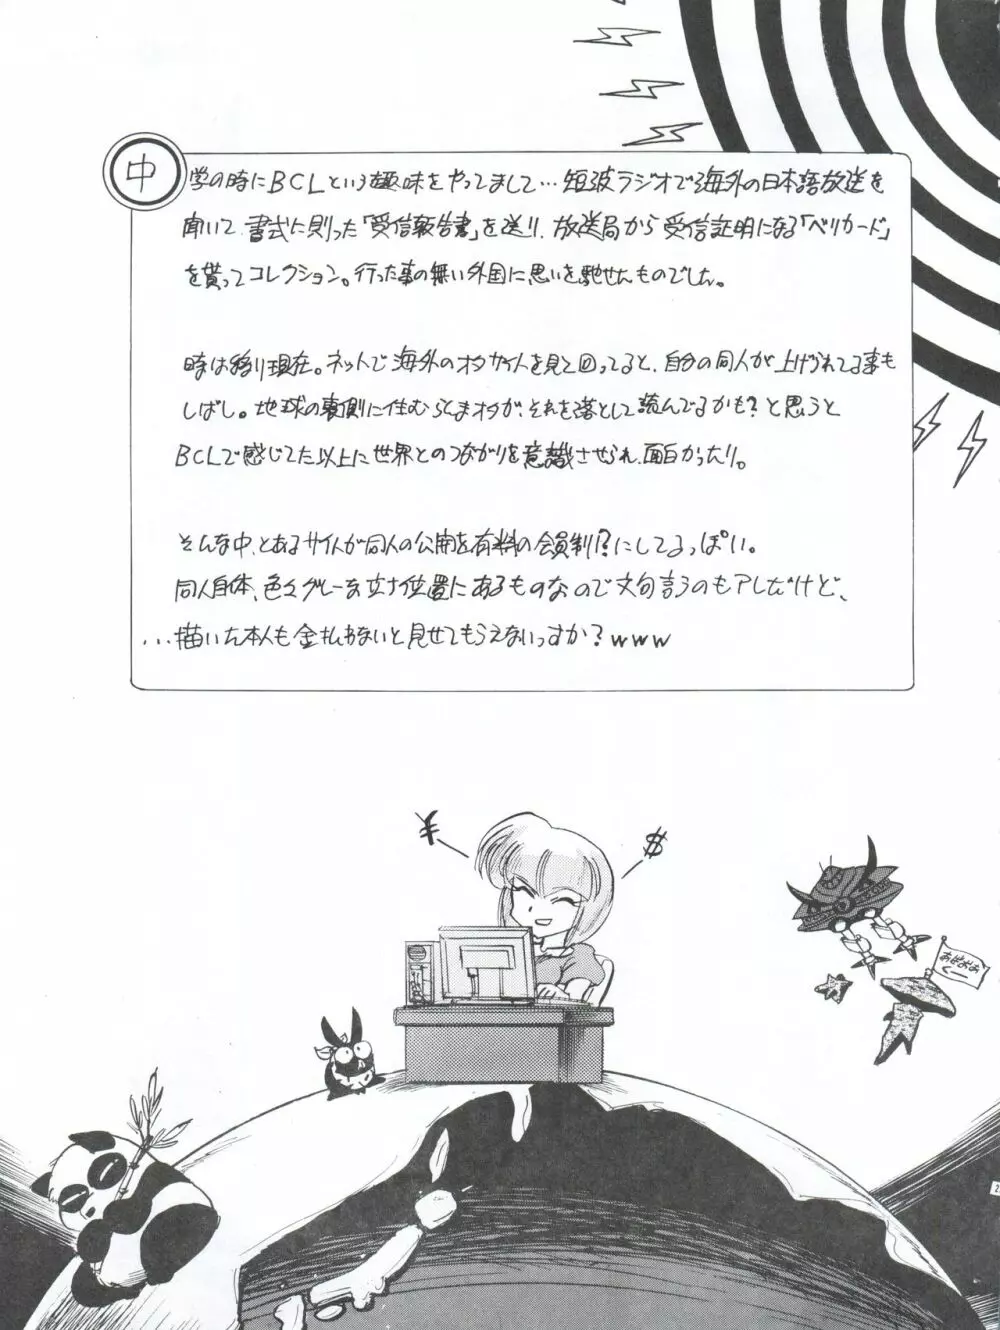 中学の時にBCLという趣味をやってまして…短波ラジオで海外の日本語放送を
聞いて、書式に則った「受信報告書」を送り、放送局から受信証明になる「ベリカード」
を貰ってコレクション。行った事の無い外国に思いを馳せたものでした。
時は移り現在。ネットで海外のオタサイトを見て回ってると、自分の同人が上げられてる事も
しばし。地球の裏側に住むらんまオタが、それを落として読んでるかも?と思うと
BCLで感じてた以上に世界とのつながりを意識させられ、面白かったり。
そんな中、とあるサイトが同人の公開を有料の会員制!?にしてるっぽい。
同人自体、色々グレーな立ち位置にあるものなので文句言うのもアレだけど、
...描いた本人も金払わないと見せてもらえないっすか?www
¥
$